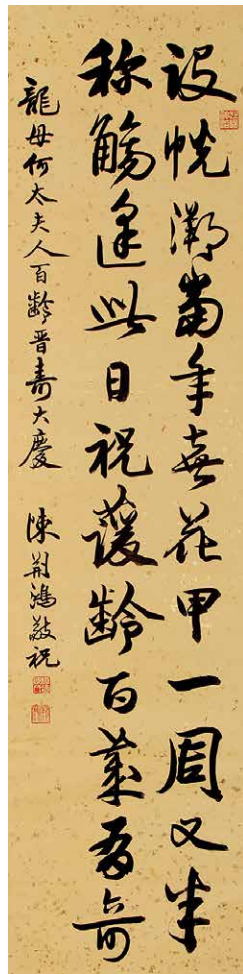 設帨溯當年喜花甲一周又半
称觴逢此日祝蘐齡百歲有奇
龍母何太夫人百齡晋壽大慶 陳荆鴻敬祝